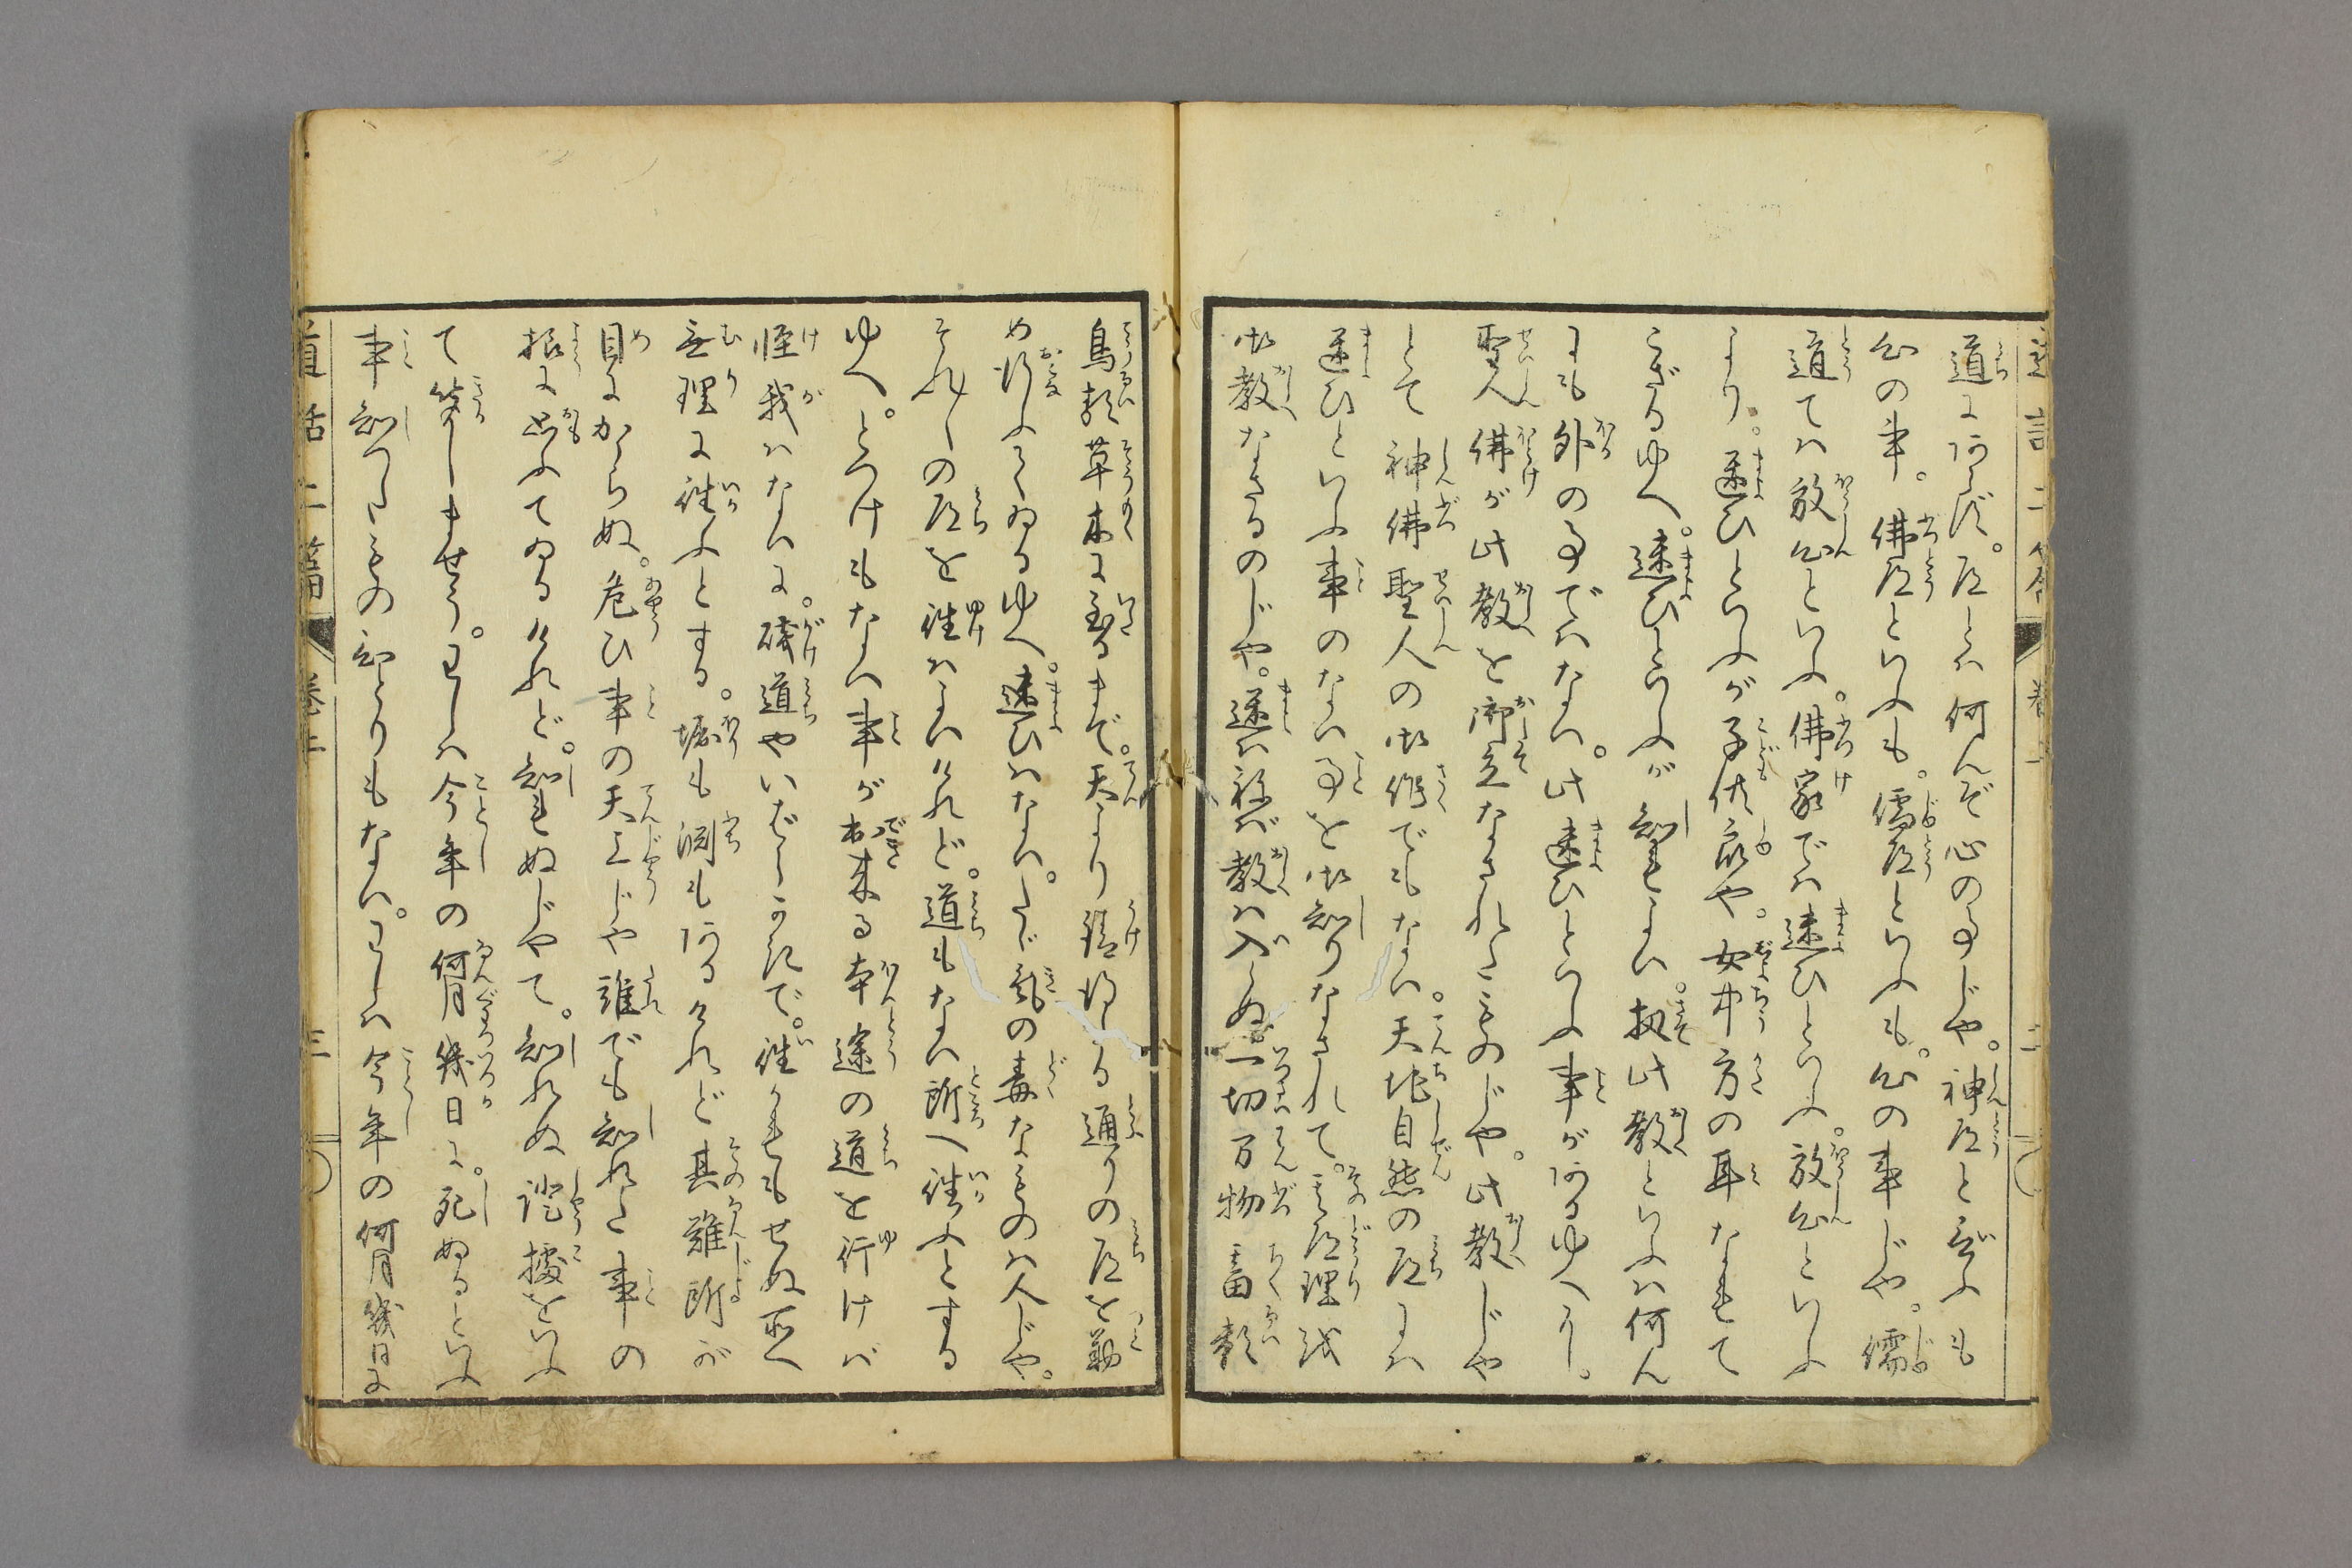 道にあらず。道とは何んぞ心の事じや。神道と言ふも
心の事。佛道といふも。儒道といふも。心の事じや。儒
道ては放心といふ。佛家では迷ひといふ。放心といふ
より。迷ひといふが子供衆や。女中方の耳なれて
ござるゆへ。迷ひといふが知れよい。扨此教といふは何ん
にも外の事ではない。此迷ひといふ事があるゆへ
聖人佛が此教を御立なされたものじや。此教じや
とて神佛聖人の御作でもない。天地自然の道には
迷ひといふ事のない事を御知りなされて。其道理を
御教なさるのじや。迷は祢ば教は入らぬ一切万物畜類
鳥類草木に至るまで。天より請得たる通りの道を勤
め行ふてゐるゆへ。迷ひはない。たゞ氣の毒なものは人じや。
それ〳〵の道を往けはよいけれど。道もない所へ往ふとする
ゆへ。とつけもない事が出来る本途の道を行けば
怪我はないに。磯道やいばらこみで。往かれもせぬ所へ
無理に往ふとする。堀も渕もあるけれど其難所が
目にかゝらぬ。危ひ事の天上じや誰でも知れた事の
様に思ふてゐるけれど。知れぬじやて。知れぬ證據をいふ
て笑しませう。わしは今年の何月幾日に。死ぬるといふ
事知つたものひとりもない。わしは今年の何月幾日に
道話二篇 巻上 三